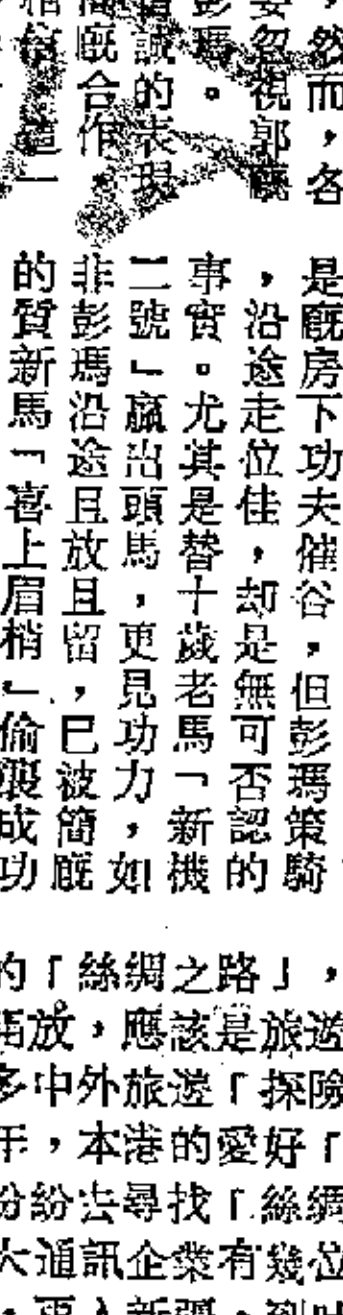 ，然而，各
忽視郭廐
彭瑪。
誠的表現
廐合作，
是廐房下功夫催谷，但彭瑪策騎
，沿途走位佳，却是無可否認的
事實。尤其是替十歲老馬「新機
二號」贏出頭馬，更見功力，如
非彭瑪沿途且放且留，已被簡廐
的質新馬「喜上眉梢」偷襲成功
的「絲綢之路」，
開放，應該是旅遊
多中外旅遊「探險
，本港的愛好「
紛紛去尋找「絲綢
大通訊企業有幾位